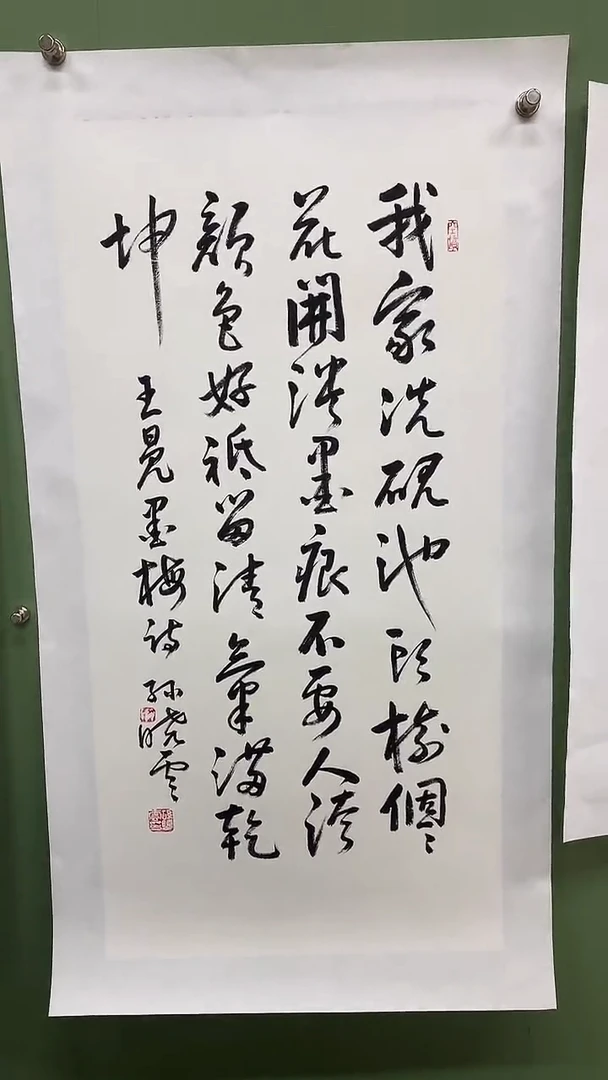 我家洗硯池頭樹個々
花開淡墨痕不要人誇
顏色好祗留清氣滿乾
坤
王冕墨梅詩 孫曉雲